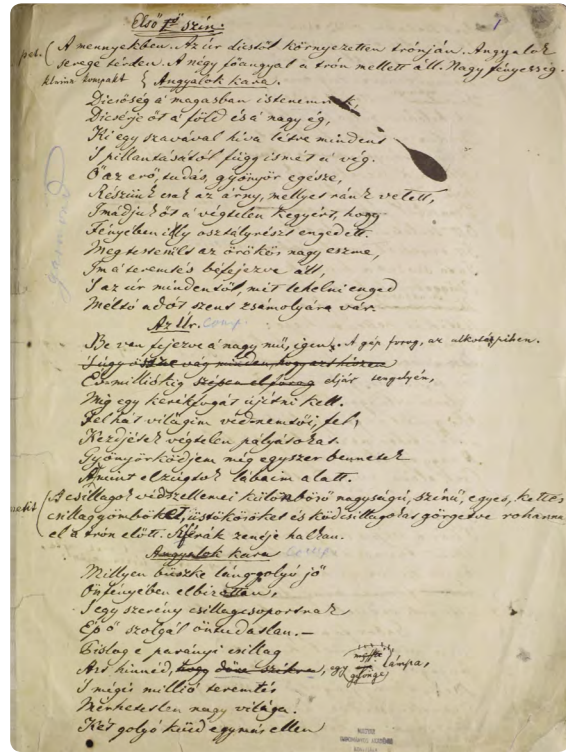 Első szín.
1
A mennyekben. Az úr dicstől környezetten trónján. Angyalok
serege térden. A négy főangyal a trón mellett áll. Nagy fényesség.
Angyalok kara.
Dicsőség a magasban istenemnek,
Dicsérje őt a föld és a nagy ég,
Ki egy szavával híva létre mindent
S pillantásától függ ismét a vég.
Ő az erő, tudás, gyönyör egésze,
Részünk csak az árny, mellyet ránk vetett,
Imádjuk őt a végtelen kegyért, hogy
Fényében illy osztályrészt engedett.
Megtestesült az örökös nagy eszme,
Im a teremtés béfejezve áll,
S az úr mindentől, mit lehelni enged
Méltó adót szent zsámolyára vár.
Az Úr.
Be van fejezve a nagy mű, igen. A gép forog, az alkotó pihen.
Év-milliókig eljár tengelyén,
Mig egy kerékfogát ujítni kell.
Fel hát világim védnemtői, fel,
Kezdjétek végtelen pályátokat.
Gyönyörködjem még egyszer bennetek
Amint elzúgtok lábaim alatt.
A csillagok védszellemei különböző nagyságú, színű, egyes, kettős
csillaggömböket, üstökösöket és ködcsillagokat görgetve rohannak
el a trón előtt. Sférák zenéje halkan.
Angyalok kara
Millyen büszke lánggolyó jő
Önfényében elbizottan,
S egy szerény csillagcsoportnak
Ép ő szolgál öntudatlan.—
Pislog e parányi csillag
Azt hinnéd, egy gyönge lámpa,
S mégis millió teremtés
Mérhetetlen nagy világa.
Két golyó küzd egymás ellen